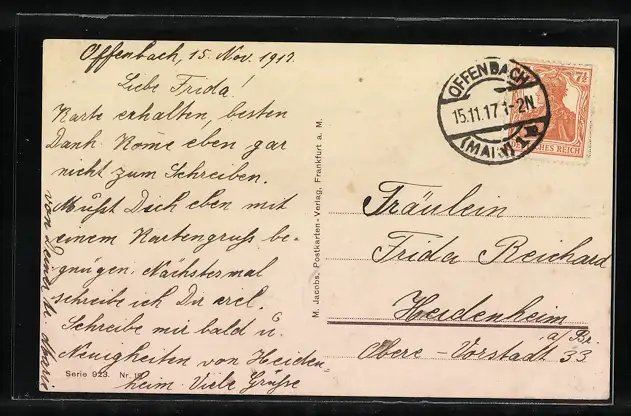 Offenbach, 15. Nov. 1917.
Liebe Frida!
Karte erhalten, besten
Dank. Kome eben gar
nicht zum Schreiben.
Mußt Dich eben mit
einem Kartengruß be-
gnügen. Nächstesmal
schreibe ich Dir viel.
Schreibe mir bald u.
Neuigkeiten von Heiden-
heim. Viele Grüße
von
Serie 923. Nr.
M. Jacobs, Postkarten-Verlag, Frankfurt a. M.
OFFENBACH
15.11.17. 1-2N
(MAIN) 1
7½
DEUTSCHES REICH
Fräulein
Frida Reichard
Heidenheim
a/Br.
Obere-Vorstadt 33